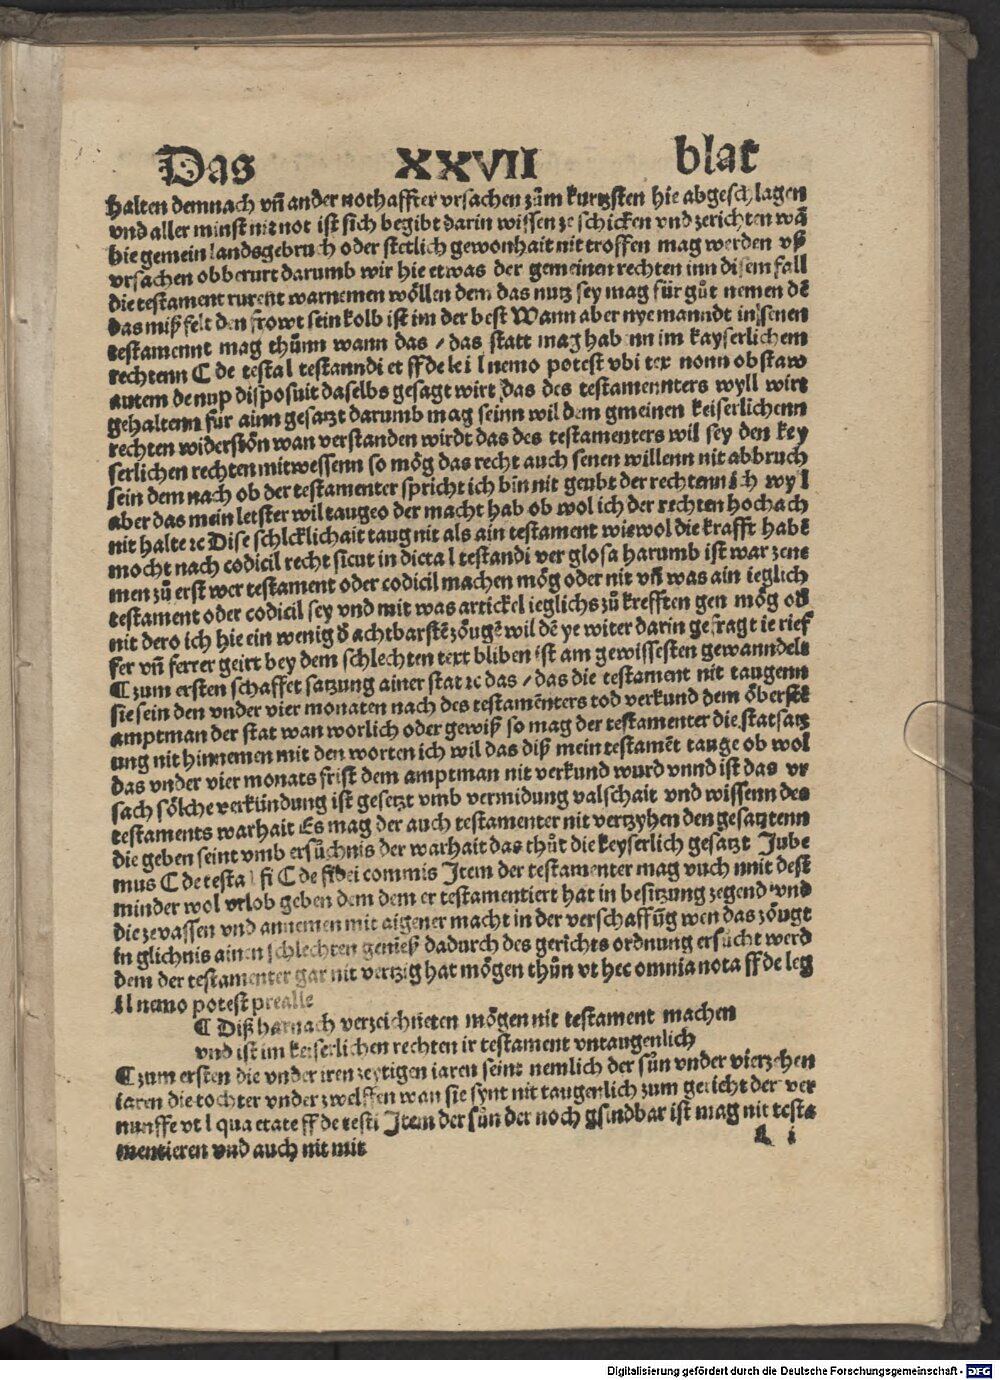 Das XXVII blat
halten demnach vñ ander nothaffter vrsachen zům kurtzsten hie abgeschlagen
vnd aller minst nit not ist sich begibt darin wissen ze schicken vnd zerichten wā
hie gemein landsgebruch oder stetlich gewonhait nit troffen mag werden vß
vrsachen obberurt darumb wir hie etwas der gemeinen rechten inn disem fall
die testament rurent warnemen wöllen dem das nutz sey mag für gůt nemen dē
das mißfelt den frowt sein kolb ist im der best Wann aber nyemanndt in senen
testamennt mag thůnn wann das / das statt mag habenn im kayserlichem
rechtenn C de testa l testanndi et ff de le i l nemo potest vbi tex nonn obstaw
autem de nup disposuit daselbs gesagt wirt das des testamennters wyll wirt
gehaltenn für ainn gesatzt darumb mag seinn wil dem gmeinen keiserlichenn
rechten widerstōn wan verstanden wirdt das des testamenters wil sey den key
serlichen rechten mitwessenn so mög das recht auch senen willenn nit abbruch
sein dem nach ob der testamenter spricht ich bin nit geubt der rechtenn ich wyl
aber das mein letster wil taugeo der macht hab ob wol ich der rechten hochach
nit halte ꝛc Dise schlcklichait taug nit als ain testament wiewol die krafft habē
mocht nach codicil recht sicut in dicta l testandi ver glosa harumb ist war zene
men zů erst wer testament oder codicil machen mög oder nit vñ was ain ieglich
testament oder codicil sey vnd mit was artickel ieglichs zů krefften gen mög od
nit dero ich hie ein wenig d achtbarstē zöugē wil dē ye witer darin gefragt ie rief
fer vñ ferrer geirt bey dem schlechten text bliben ist am gewissesten gewanndels
¶ zum ersten schaffet satzung ainer stat ꝛc das / das die testament nit taugenn
sie sein den vnder vier monaten nach des testamēnters tod verkund dem öberstē
amptman der stat wan worlich oder gewiß so mag der testamenter die statsatz
ung nit hinnemen mit den worten ich wil das diß mein testamēt tauge ob wol
das vnder vier monats frist dem amptman nit verkund wurd vnnd ist das vr
sach sölche verkündung ist gesetzt vmb vermidung valschait vnd wissenn des
testaments warhait Es mag der auch testamenter nit vertzyhen den gesatztenn
die geben seint vmb ersůchnis der warhait das thůt die keyserlich gesatzt Jube
mus C de testa l fi C de fidei commis Item der testamenter mag vuch nnit dest
minder wol vrlob geben dem dem er testamentiert hat in besitzung zegend vnd
die zevassen vnd annemen mit aigener macht in der verschaffūg wen das zöugt
in glichnis ainen schlechten genieß dadurch des gerichts ordnung ersücht werd
dem der testamenter gar nit vertzig hat mögen thůn vt hec omnia nota ff de leg
i l nemo potest prealle
¶ Diß harnach verzeichneten mögen nit testament machen
vnd ist im keiserlichen rechten ir testament vntaugenlich
¶ zum ersten die vnder iren zeytigen iaren seint nemlich der sůn vnder vierzehen
iaren die tochter vnder zwelffen wan sie synt nit taugenlich zum gericht der ver
nunsse vt l qua etate ff de testi Item der sůn der noch gsindbar ist mag nit testa
mentieren vnd auch nit mit
i